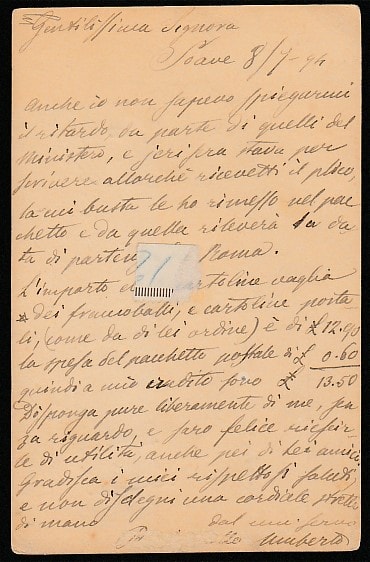 Gentilissima Signora
Soave 8/7-94
Anche io non sapevo spiegarmi
il ritardo, da parte di quelli del
Ministero, e jeri sera stava per
scrivere allorchè ricevetti il plico,
la cui busta le ho rimesso nel pac
chetto e da quella rileverà la da
ta di partenza Roma.
L'importo cartoline vaglia
dei francobolli, e cartoline posta
li, (come da di lei ordine) è di £ 12.90
la spesa del pacchetto postale di £ 0.60
quindi a mio credito sono £ 13.50
Disponga pure liberamente di me, sen
za riguardo, e sarò felice riescir
le di utilità, anche pei di Lei amici
Gradisca i miei rispettosi saluti,
e non disdegni una cordiale stretta
di mano dal suo servo
Umberto
21